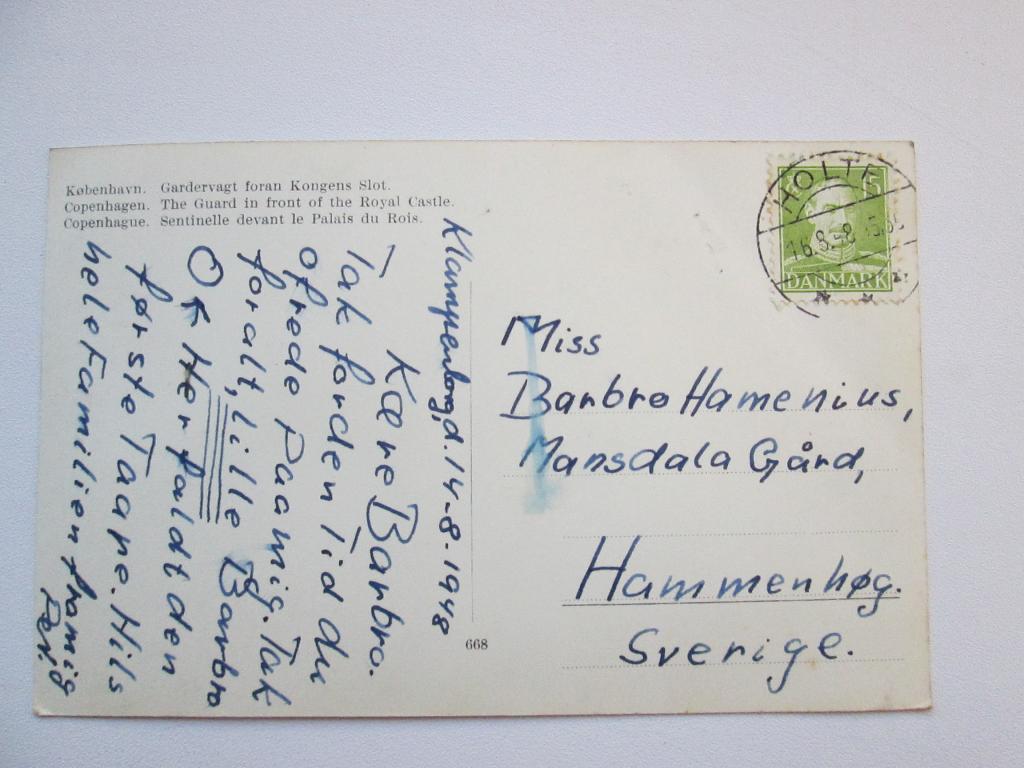 København. Gardervagt foran Kongens Slot.
Copenhagen. The Guard in front of the Royal Castle.
Copenhague. Sentinelle devant le Palais du Rois.
Klampenborg, d. 14-8-1948
Kære Barbro.
Tak for den Tid du
ofrede paa mig. Tak
for alt, Lille Barbro
O ← Her faldt den
første Taare. Hils
hele Familien fra mig
Per.
668
HOLTE
16.8.48
15
DANMARK
Miss
Barbro Hamenius,
Mansdala Gård,
Hammenhøg.
Sverige.